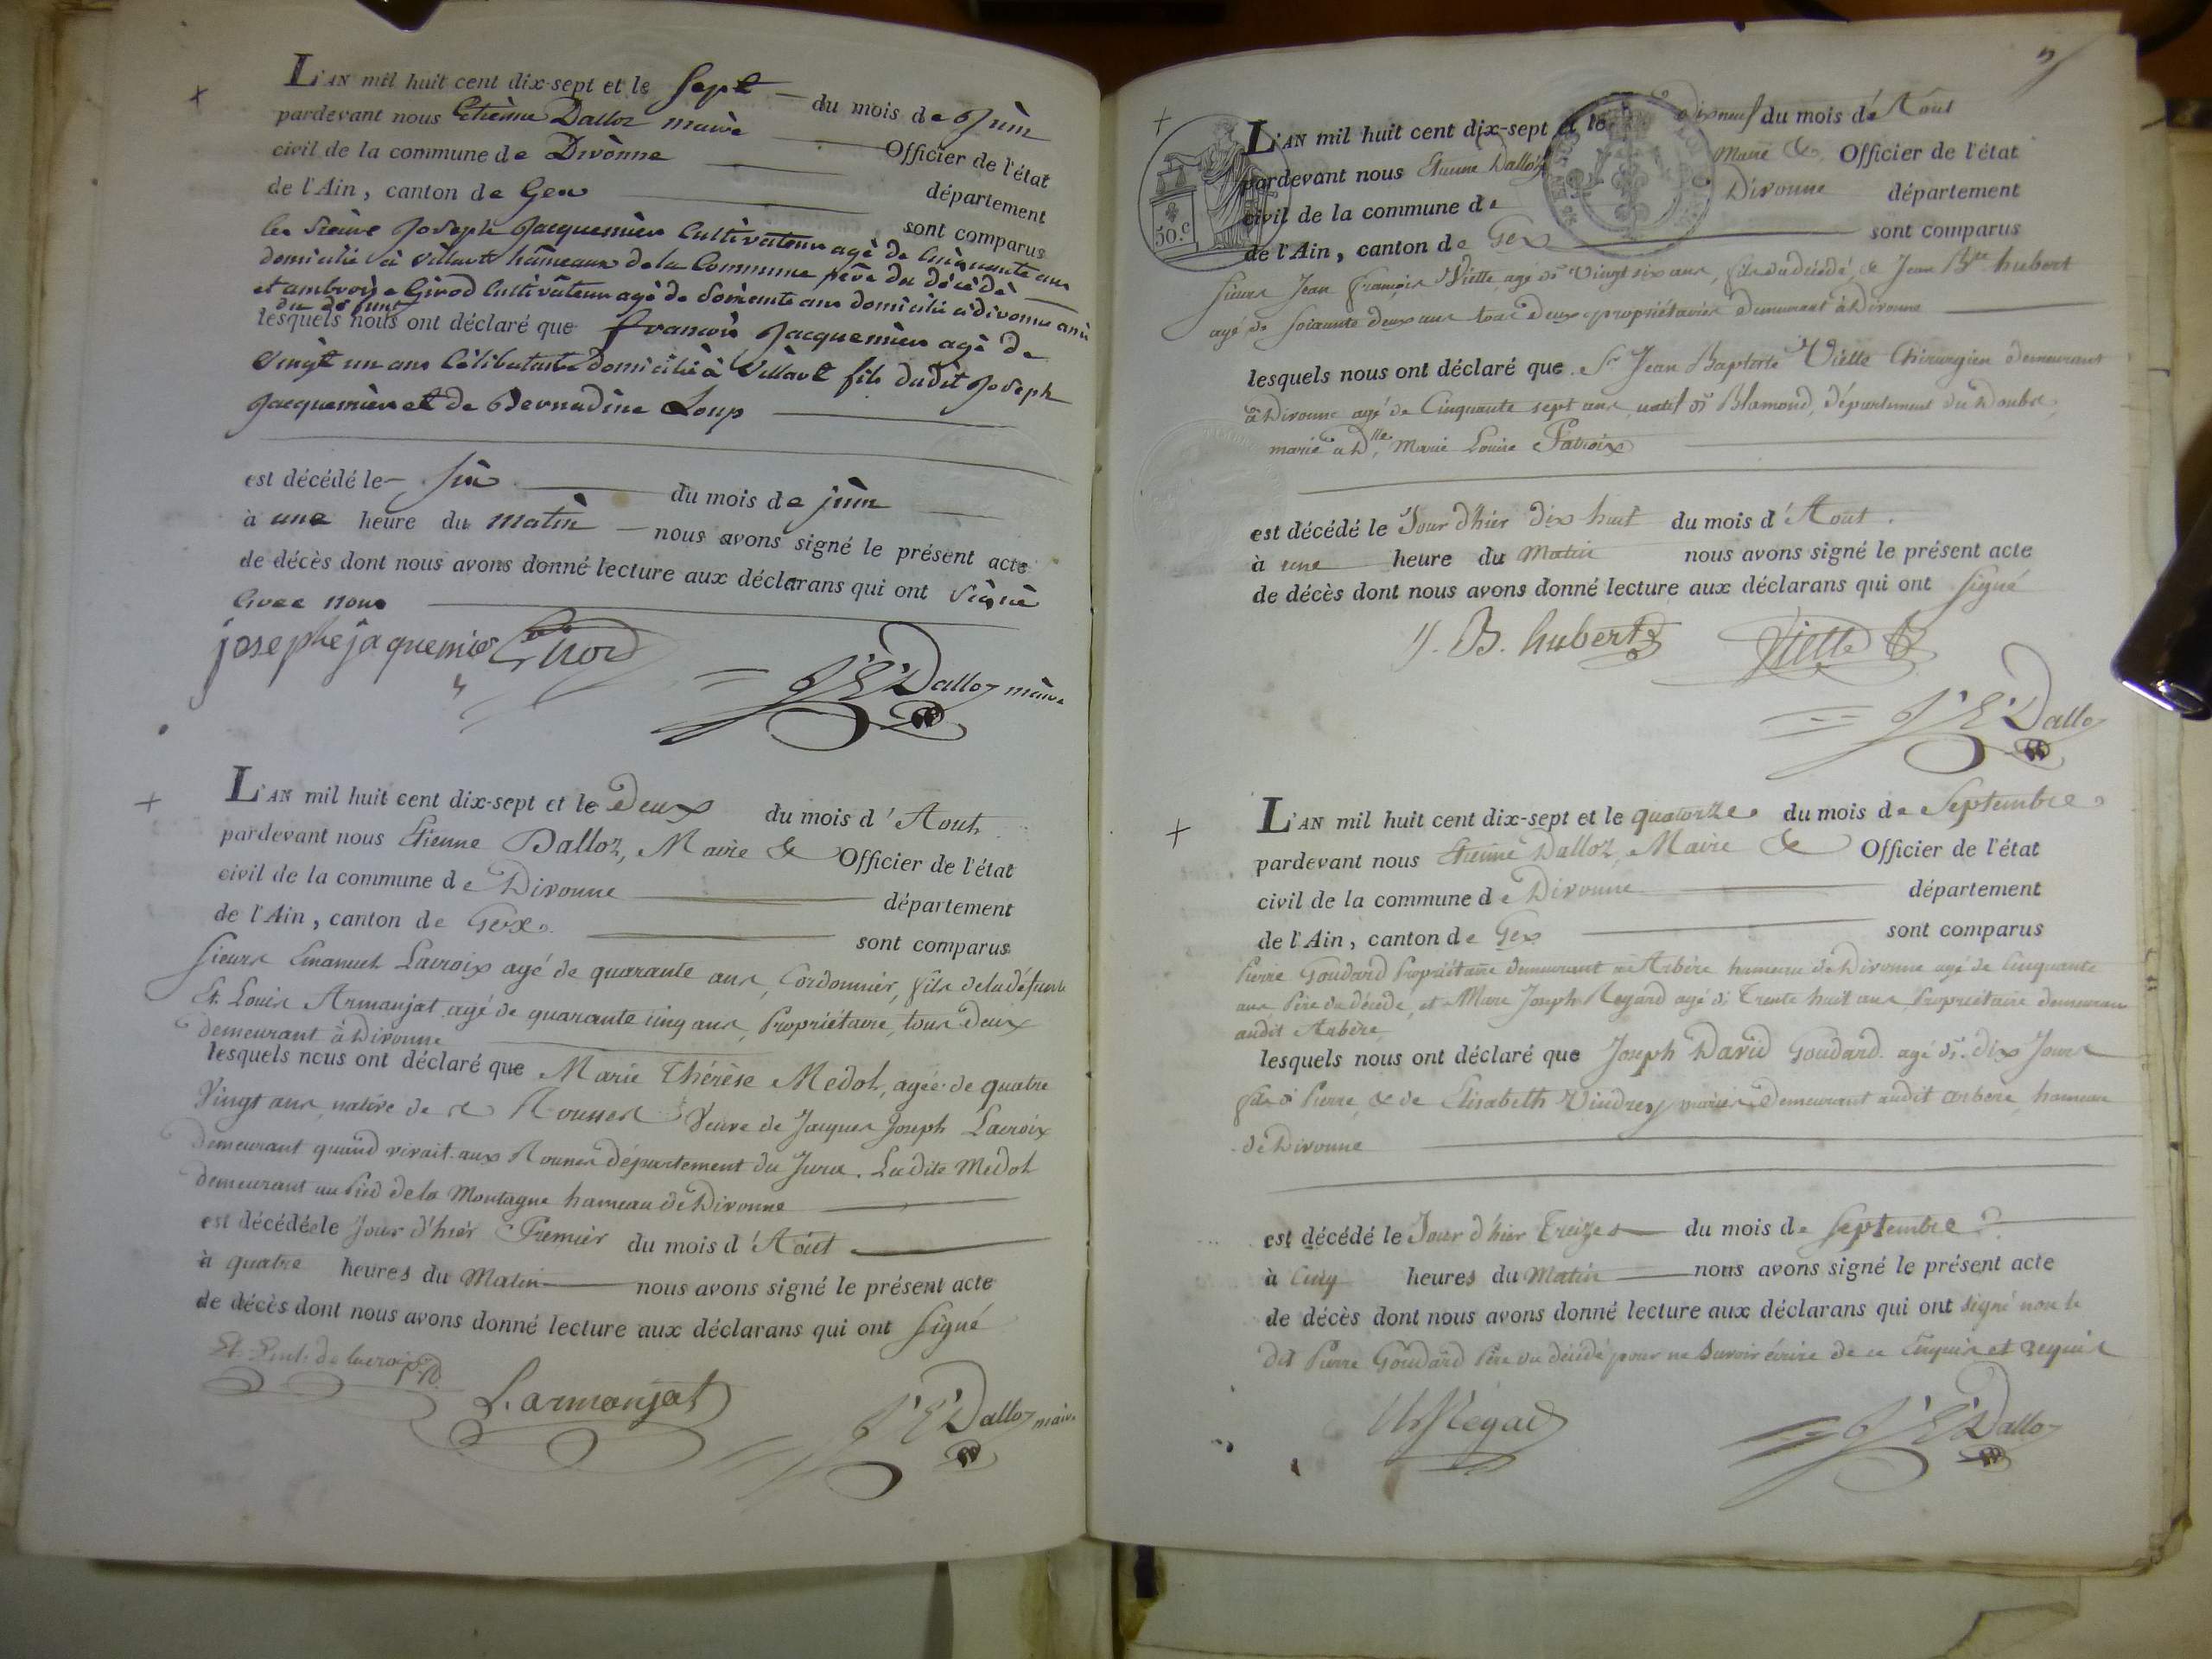 L'AN mil huit cent dix-sept et le Sept du mois de Juin
pardevant nous Etiènne Dalloz maire Officier de l'état
civil de la commune de Divonne département
de l'Ain, canton de Gex sont comparus
les Sieurs Joseph Jacquemier Cultivateur agé de Cinquante ans
domicilié à Villard hameaux de la Commune père du décédé
et ambroise Girod Cultivateur agé de Soixante ans domicilié à divonne ami
du défunt
lesquels nous ont déclaré que francois Jacquemier agé de
Vingt un ans Célibataire Domicilié à Villard fils dudit Joseph
Jacquemier et de Bernadine Loup
est décédé le Six du mois de juin
à une heure du matin nous avons signé le présent acte
de décès dont nous avons donné lecture aux déclarans qui ont Signé
avec nous
josephe jaquemier Girod
J. E. Dalloz maire
L'AN mil huit cent dix-sept et le Deux du mois d'Aout
pardevant nous Etienne Dalloz, Maire & Officier de l'état
civil de la commune de Divonne département
de l'Ain, canton de Gex sont comparus
Sieurs Emanuel Lacroix agé de quarante ans, Cordonnier, fils de la défunte
Et Louis Armanjat agé de quarante cinq ans, Propriétaire, tous deux
demeurant à Divonne
lesquels nous ont déclaré que Marie Thérèse Medol, agée de quatre
Vingt ans, native de Rousses Veuve de Jacques Joseph Lacroix
Demeurant quand vivait aux Rousses département du Jura. Ladite Medol
demeurant au Pied de la Montagne hameau de Divonne
est décédée le Jour d'hier Premier du mois d'Aout
à quatre heures du Matin nous avons signé le présent acte
de décès dont nous avons donné lecture aux déclarans qui ont Signé
L. armanjat
J. E. Dalloz maire
L'AN mil huit cent dix-sept et le dixneuf du mois d'Aout
pardevant nous Etienne Dalloz Maire & Officier de l'état
civil de la commune de Divonne département
de l'Ain, canton de Gex sont comparus
50.c
Sieurs Jean François Vielle agé de Vingt six ans, fils du décédé, & Jean Bte hubert
agé de Soixante deux ans tous Deux propriétaires demeurant à Divonne
lesquels nous ont déclaré que Sr Jean Baptiste Vielle Chirurgien demeurant
à Divonne agé de Cinquante sept ans natif de Blamond, département du Doubs,
marié à Dlle Marie Louise Patroix
est décédé le Jour d'hier dix huit du mois d'Aout.
à une heure du Matin nous avons signé le présent acte
de décès dont nous avons donné lecture aux déclarans qui ont Signé
J. B. hubert Vielle
J. E. Dalloz
L'AN mil huit cent dix-sept et le quatorze du mois de Septembre
pardevant nous Etienne Dalloz, Maire & Officier de l'état
civil de la commune de Divonne département
de l'Ain, canton de Gex sont comparus
Pierre Goudard Propriétaire demeurant à Arbère hameau de Divonne agé de Cinquante
ans, Père du décédé, et Marc Joseph Regard agé de Trente huit ans, Propriétaire demeurant
audit Arbère
lesquels nous ont déclaré que Joseph David Goudard agé de dix Jours
fils de Pierre, & de Elisabeth Vindrey mariés demeurant audit arbère hameau
de Divonne
est décédé le Jour d'hier Treize du mois de Septembre
à Cinq heures du Matin nous avons signé le présent acte
de décès dont nous avons donné lecture aux déclarans qui ont signé non le
dit Pierre Goudard Père du décédé pour ne Savoir écrire de ce Enquis et requis
J. E. Dalloz